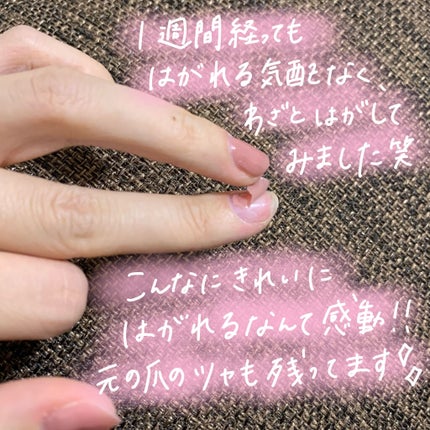 1週間経っても
はがれる気配もなく、
わざとはがして
みました笑
こんなにきれいに
はがれるなんて感動!!
元の爪のツヤも残ってます!!